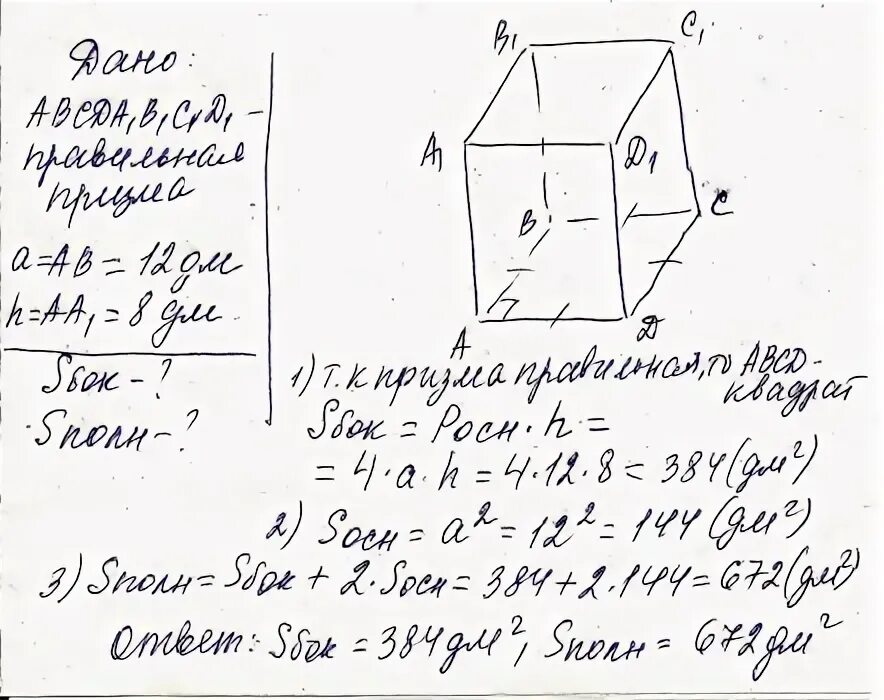 Дано:
ABCDA₁B₁C₁D₁ –
правильная
призма
a = AB = 12 дм
h = AA₁ = 8 дм
Sбок – ?
Sполн – ?
B₁
C₁
A₁
D₁
B
C
A
D
1) т.к призма правильная, то ABCD –
квадрат
Sбок = Pосн · h =
= 4 · a · h = 4 · 12 · 8 = 384 (дм²)
2) Sосн = a² = 12² = 144 (дм²)
3) Sполн = Sбок + 2 · Sосн = 384 + 2 · 144 = 672 (дм²)
Ответ: Sбок = 384 дм², Sполн = 672 дм²